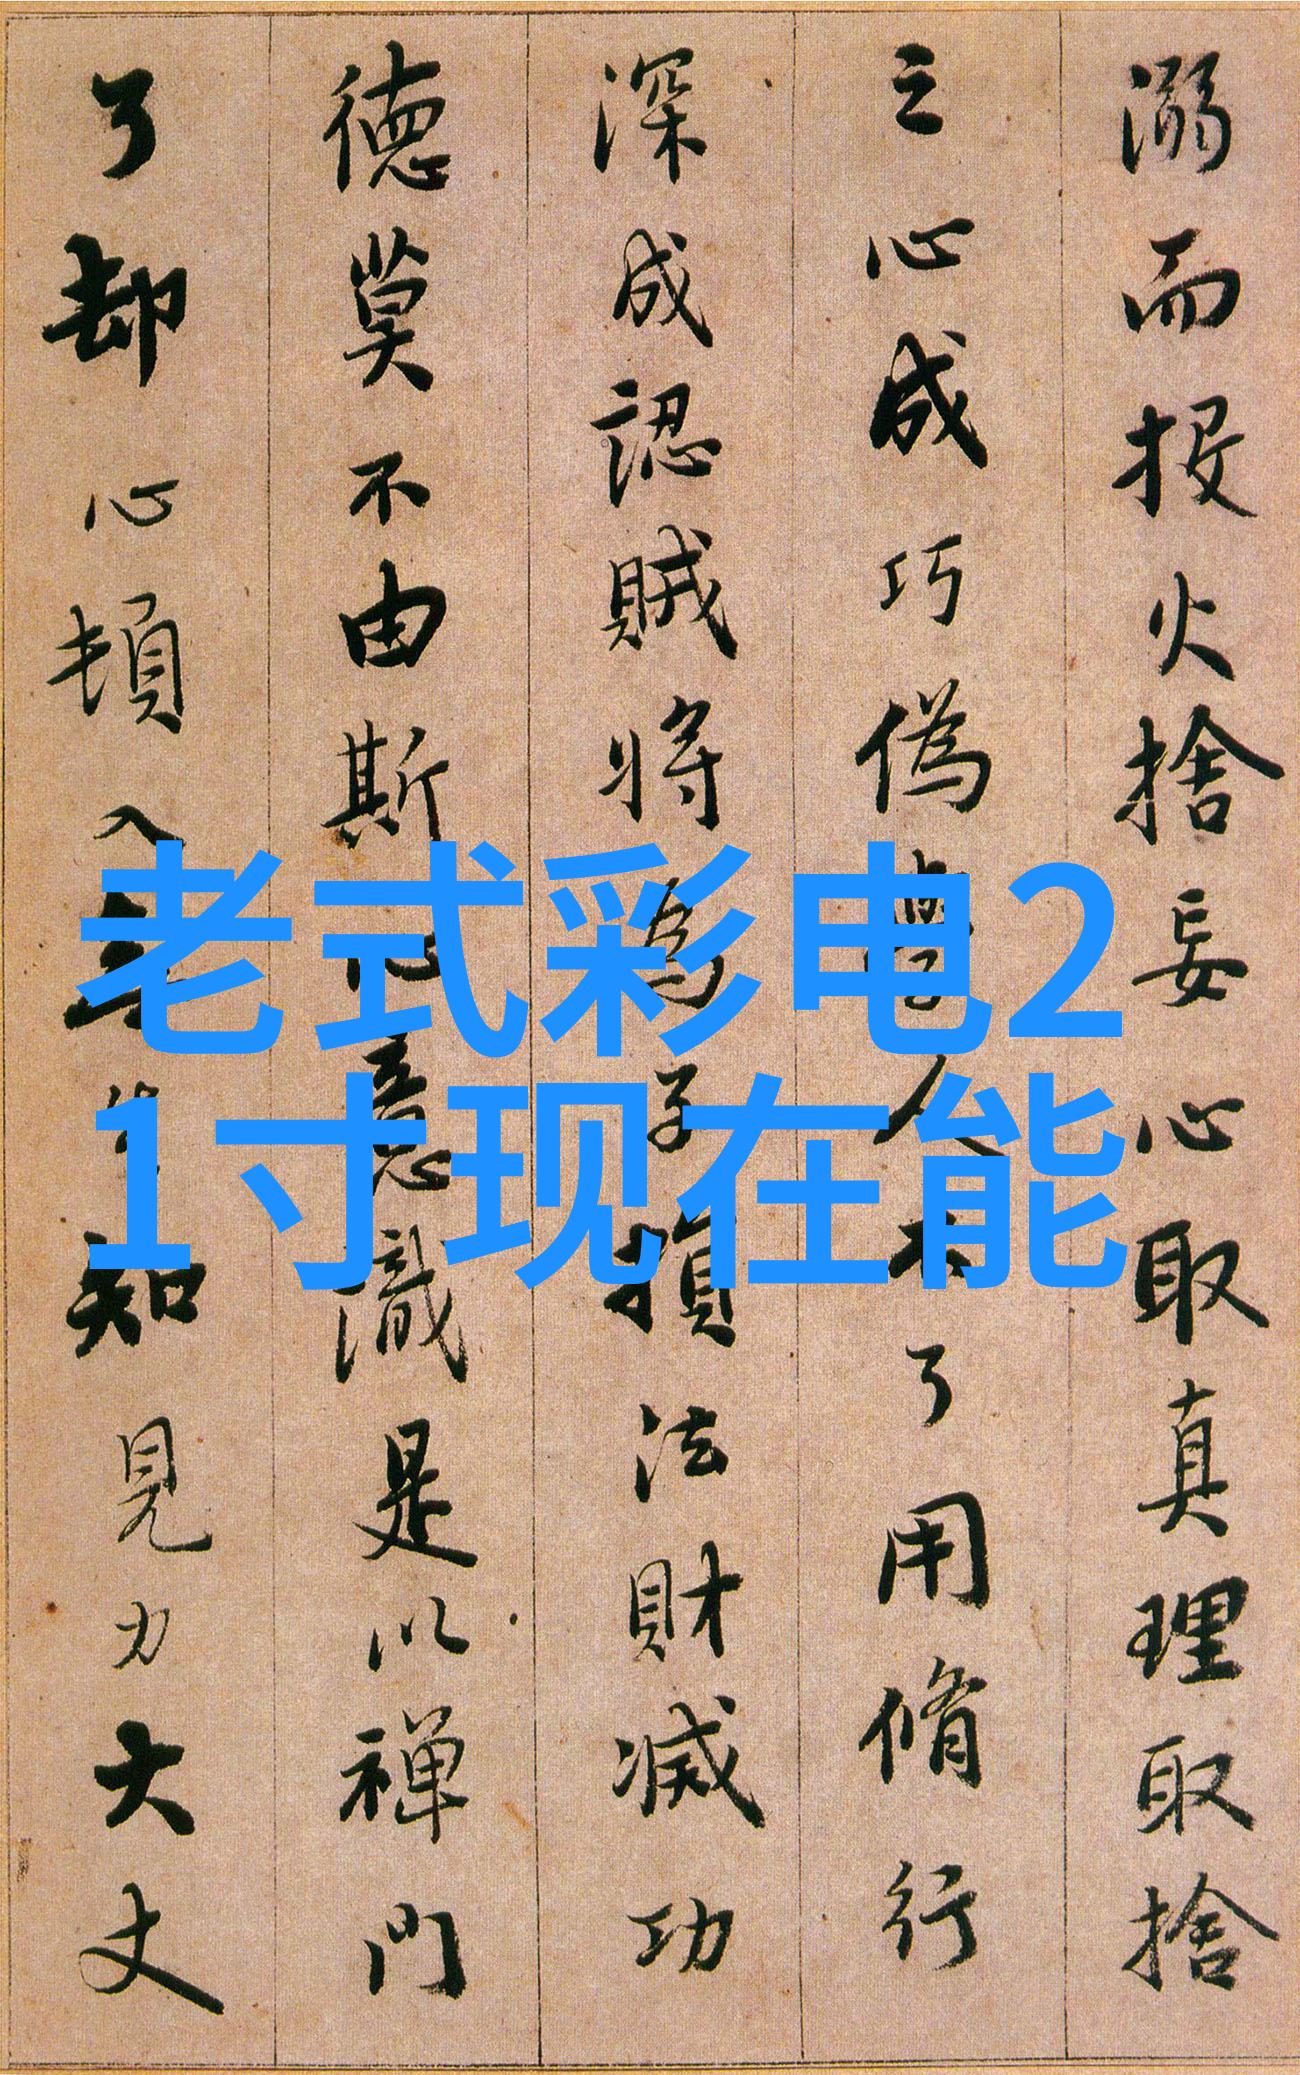 溺而投火捨妄心取真理取捨
之心成巧偽學人不了用脩行
深成認賊將為子損法財滅功
德莫不由斯心意識是以禪門
了却心頓入無生知見力大丈
老式彩电2
1寸现在能